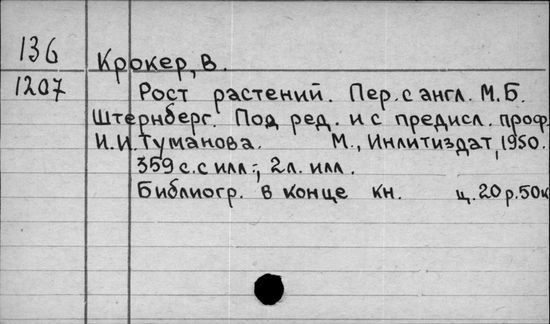 136
Крокер, В.
1207
Рост растений. Пер. с англ. М.Б.
Штернберг. Под ред. и с предисл. проф.
И.И. Туманова. М., Инлитиздат, 1950.
359 с. с илл.; 2 л. илл.
Библиогр. в конце кн. ц. 20 р. 50к